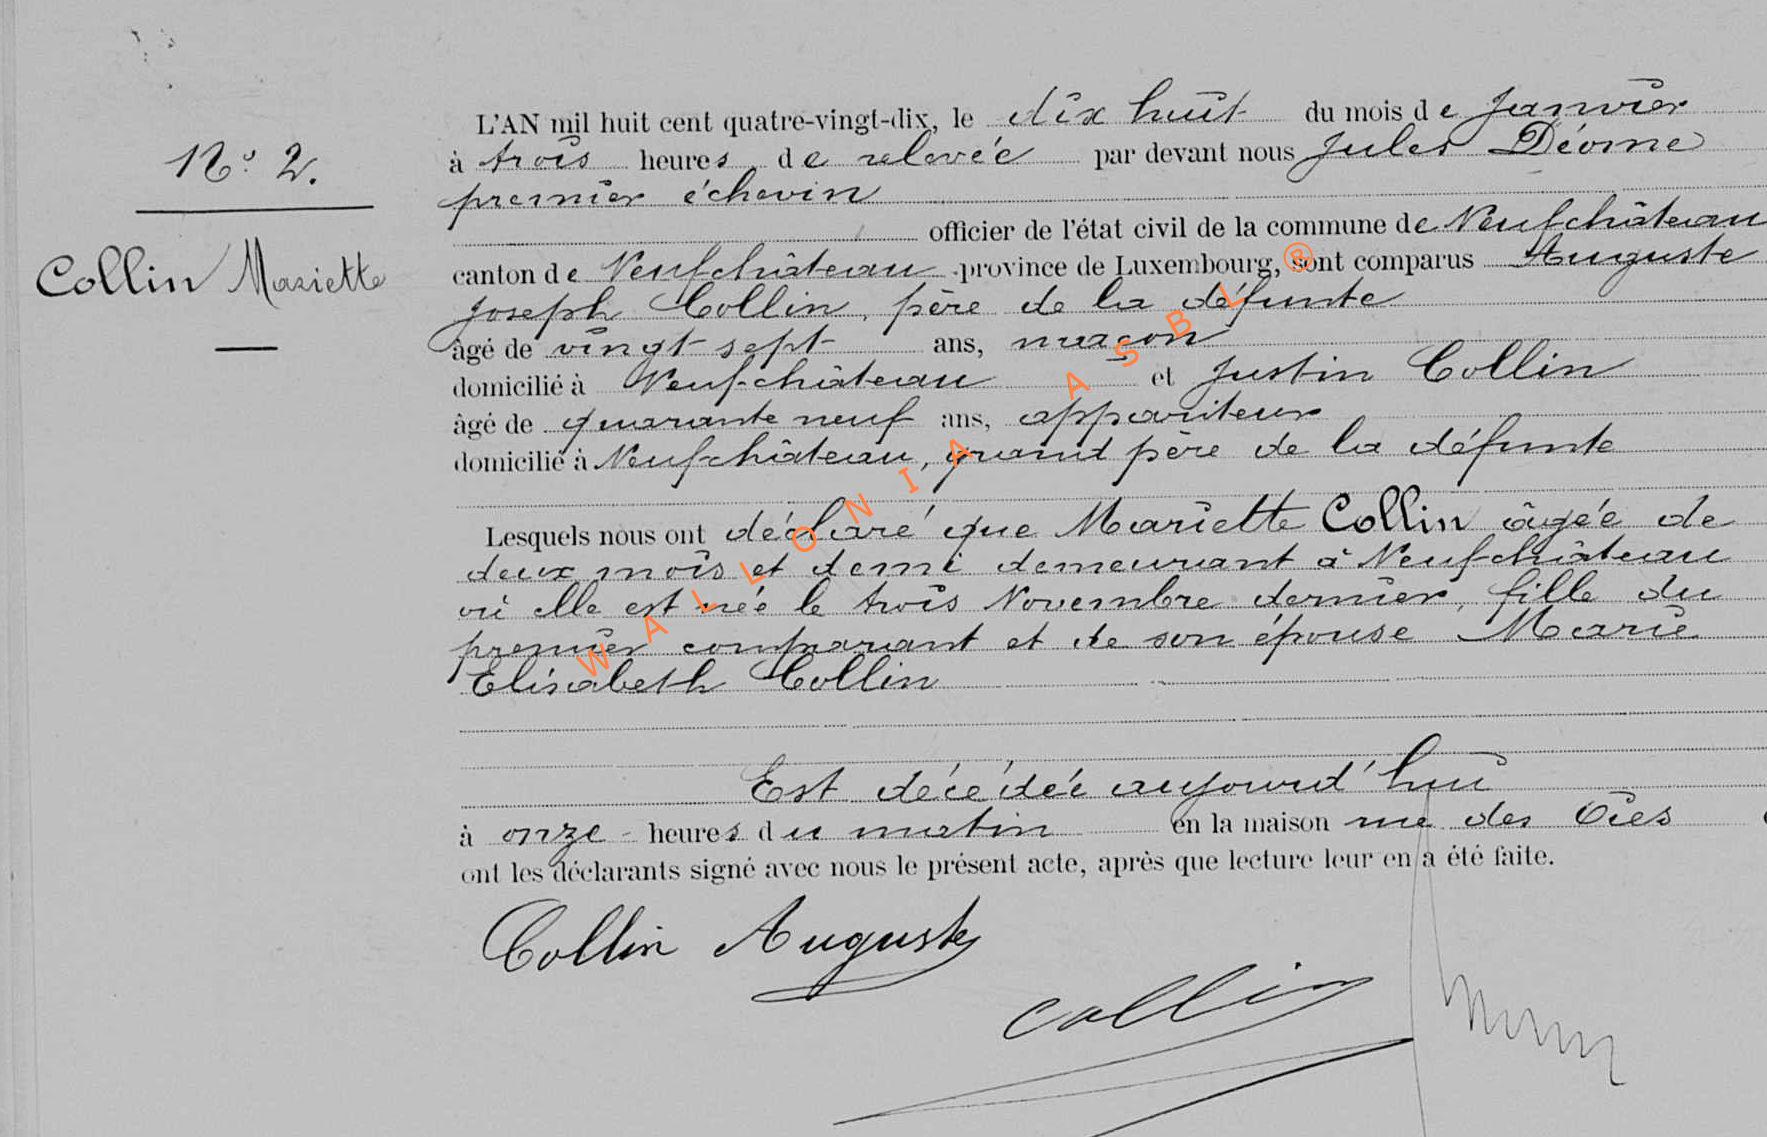 N° 2.
Collin Mariette
L'AN mil huit cent quatre-vingt-dix, le dix huit du mois de Janvier
à trois heures de relevée par devant nous Jules Déome
premier échevin
officier de l'état civil de la commune de Neufchâteau
canton de Neufchâteau province de Luxembourg, sont comparus Auguste
Joseph Collin, père de la défunte
âgé de vingt sept ans, maçon
domicilié à Neufchâteau et Justin Collin
âgé de quarante neuf ans, appariteur
domicilié à Neufchâteau, grand père de la défunte
Lesquels nous ont déclaré que Mariette Collin âgée de
deux mois et demi demeurant à Neufchâteau
où elle est née le trois Novembre dernier, fille du
premier comparant et de son épouse Marie
Elisabeth Collin
Est décédée aujourd'hui
à onze heures du matin en la maison rue des Oies
ont les déclarants signé avec nous le présent acte, après que lecture leur en a été faite.
Collin Auguste
Collin
WALLONIA ASBL ®